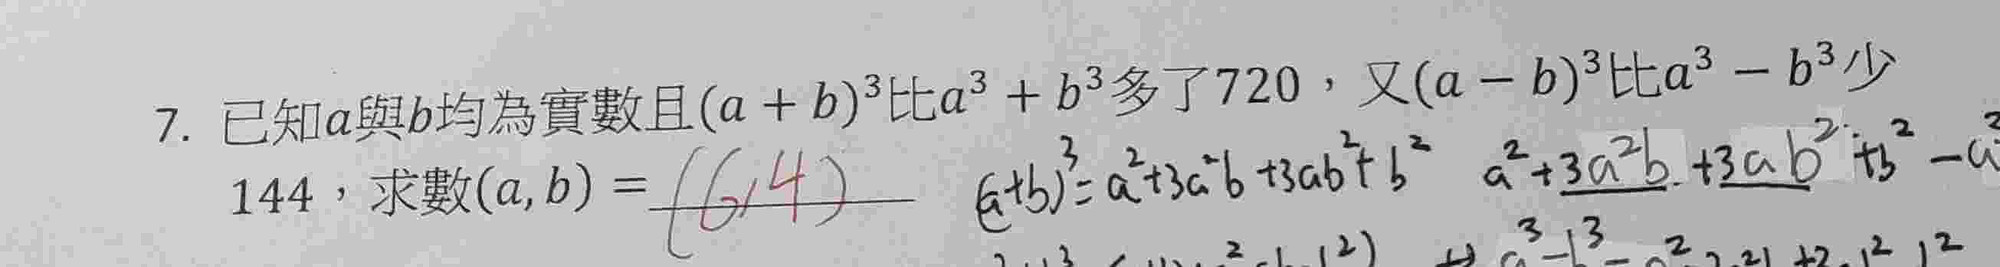 7. 已知a與b均為實數且(a + b)³比a³ + b³多了720，又(a − b)³比a³ − b³少
144，求數(a, b) = (6,4)
(a+b)³=a²+3a²b+3ab²+b² a²+3a²b+3ab²+b²−a²